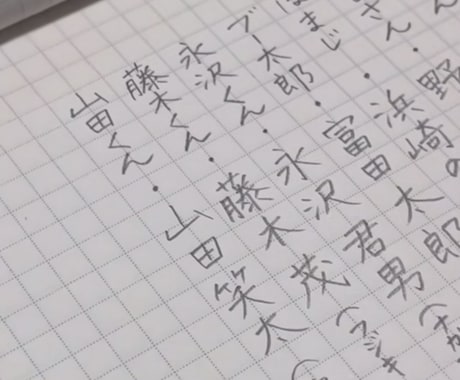 さん・野
はまじ・浜崎の
ブー太郎・富田太郎
永沢くん・永沢君男（
藤木くん・藤木茂（フジキ
山田くん・山田笑太（